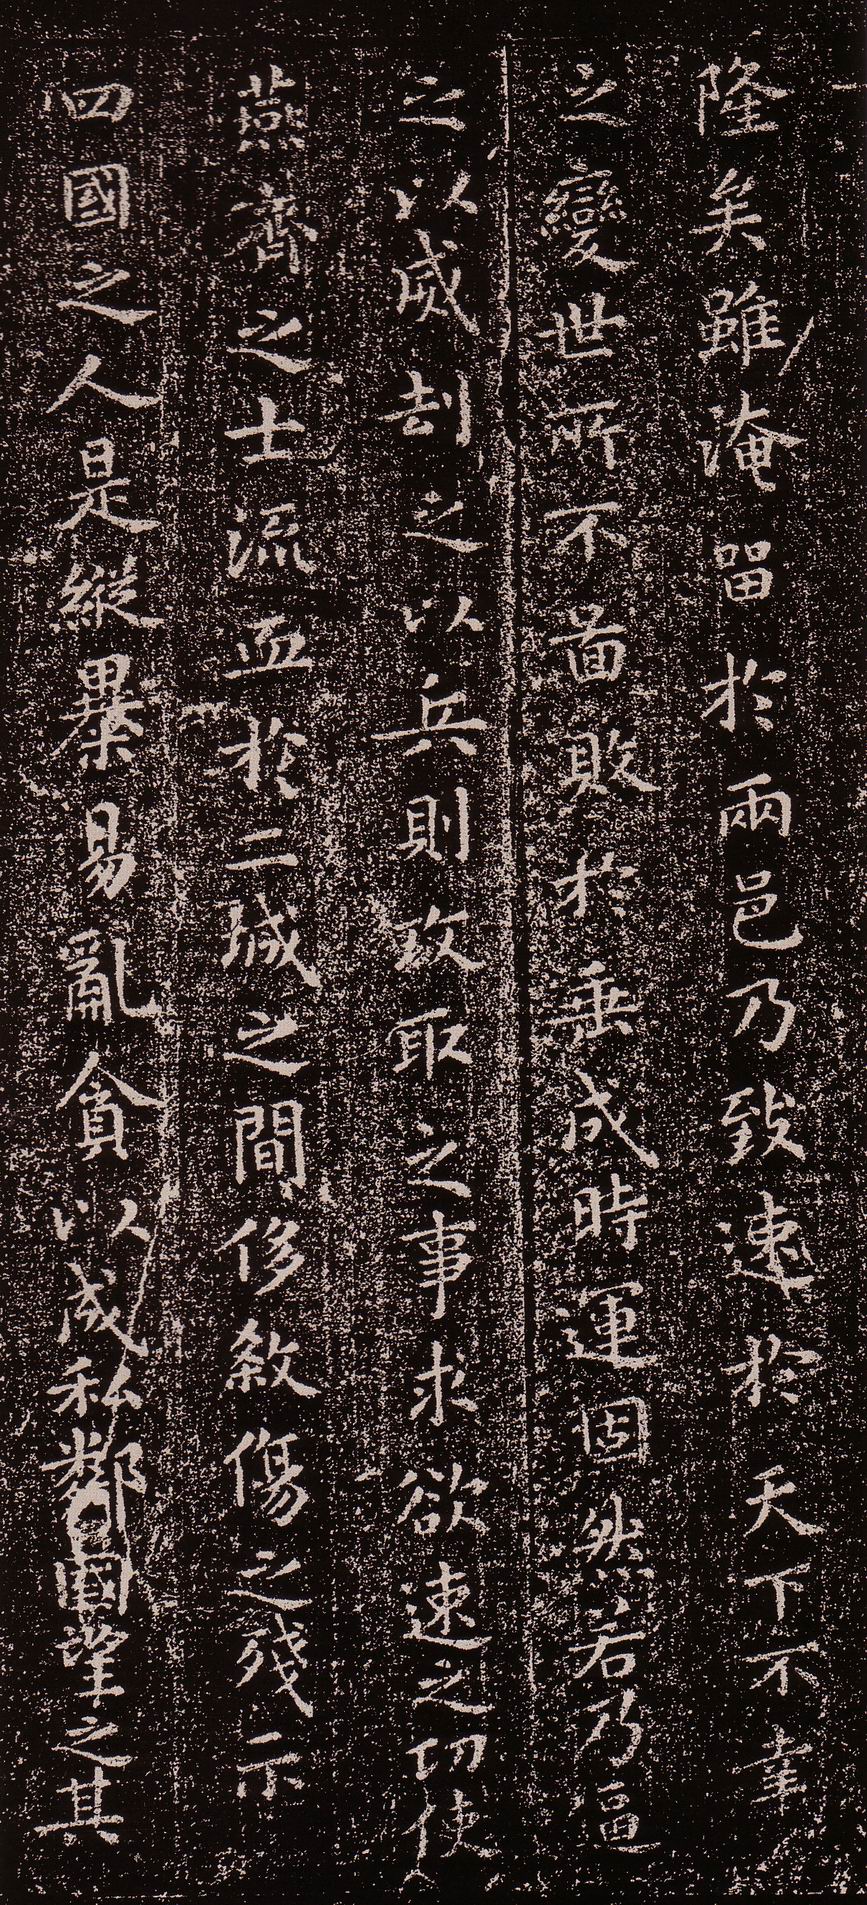 隆矣雖淹留於兩邑乃致速於天下不幸
之變世所不圖敗於垂成時運固然若乃逼
之以威刧之以兵則攻取之事求欲速之功使
燕齊之士流血於二城之間侈敘傷之殘示
四國之人是縱暴易亂貪以成私鄰國望之其